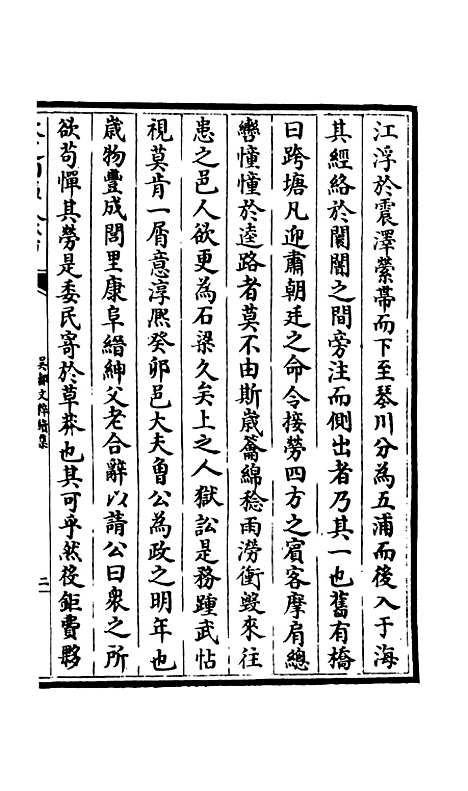 江浮於震澤縈帶而下至琴川分為五浦而後入于海
其經絡於闤闠之間旁注而側出者乃其一也舊有橋
曰跨塘凡迎肅朝廷之命令接勞四方之賓客摩肩總
轡憧憧於逵路者莫不由斯嵗籥綿稔雨澇衝毀來往
患之邑人欲更為石梁久矣上之人獄訟是務踵武怗
視莫肯一屑意淳熈癸卯邑大夫魯公為政之明年也
嵗物豐成閭里康阜縉紳父老合辭以請公曰衆之所
欲茍憚其勞是委民寄於草莽也其可乎然後鉅費夥
吳都文粹續集
二